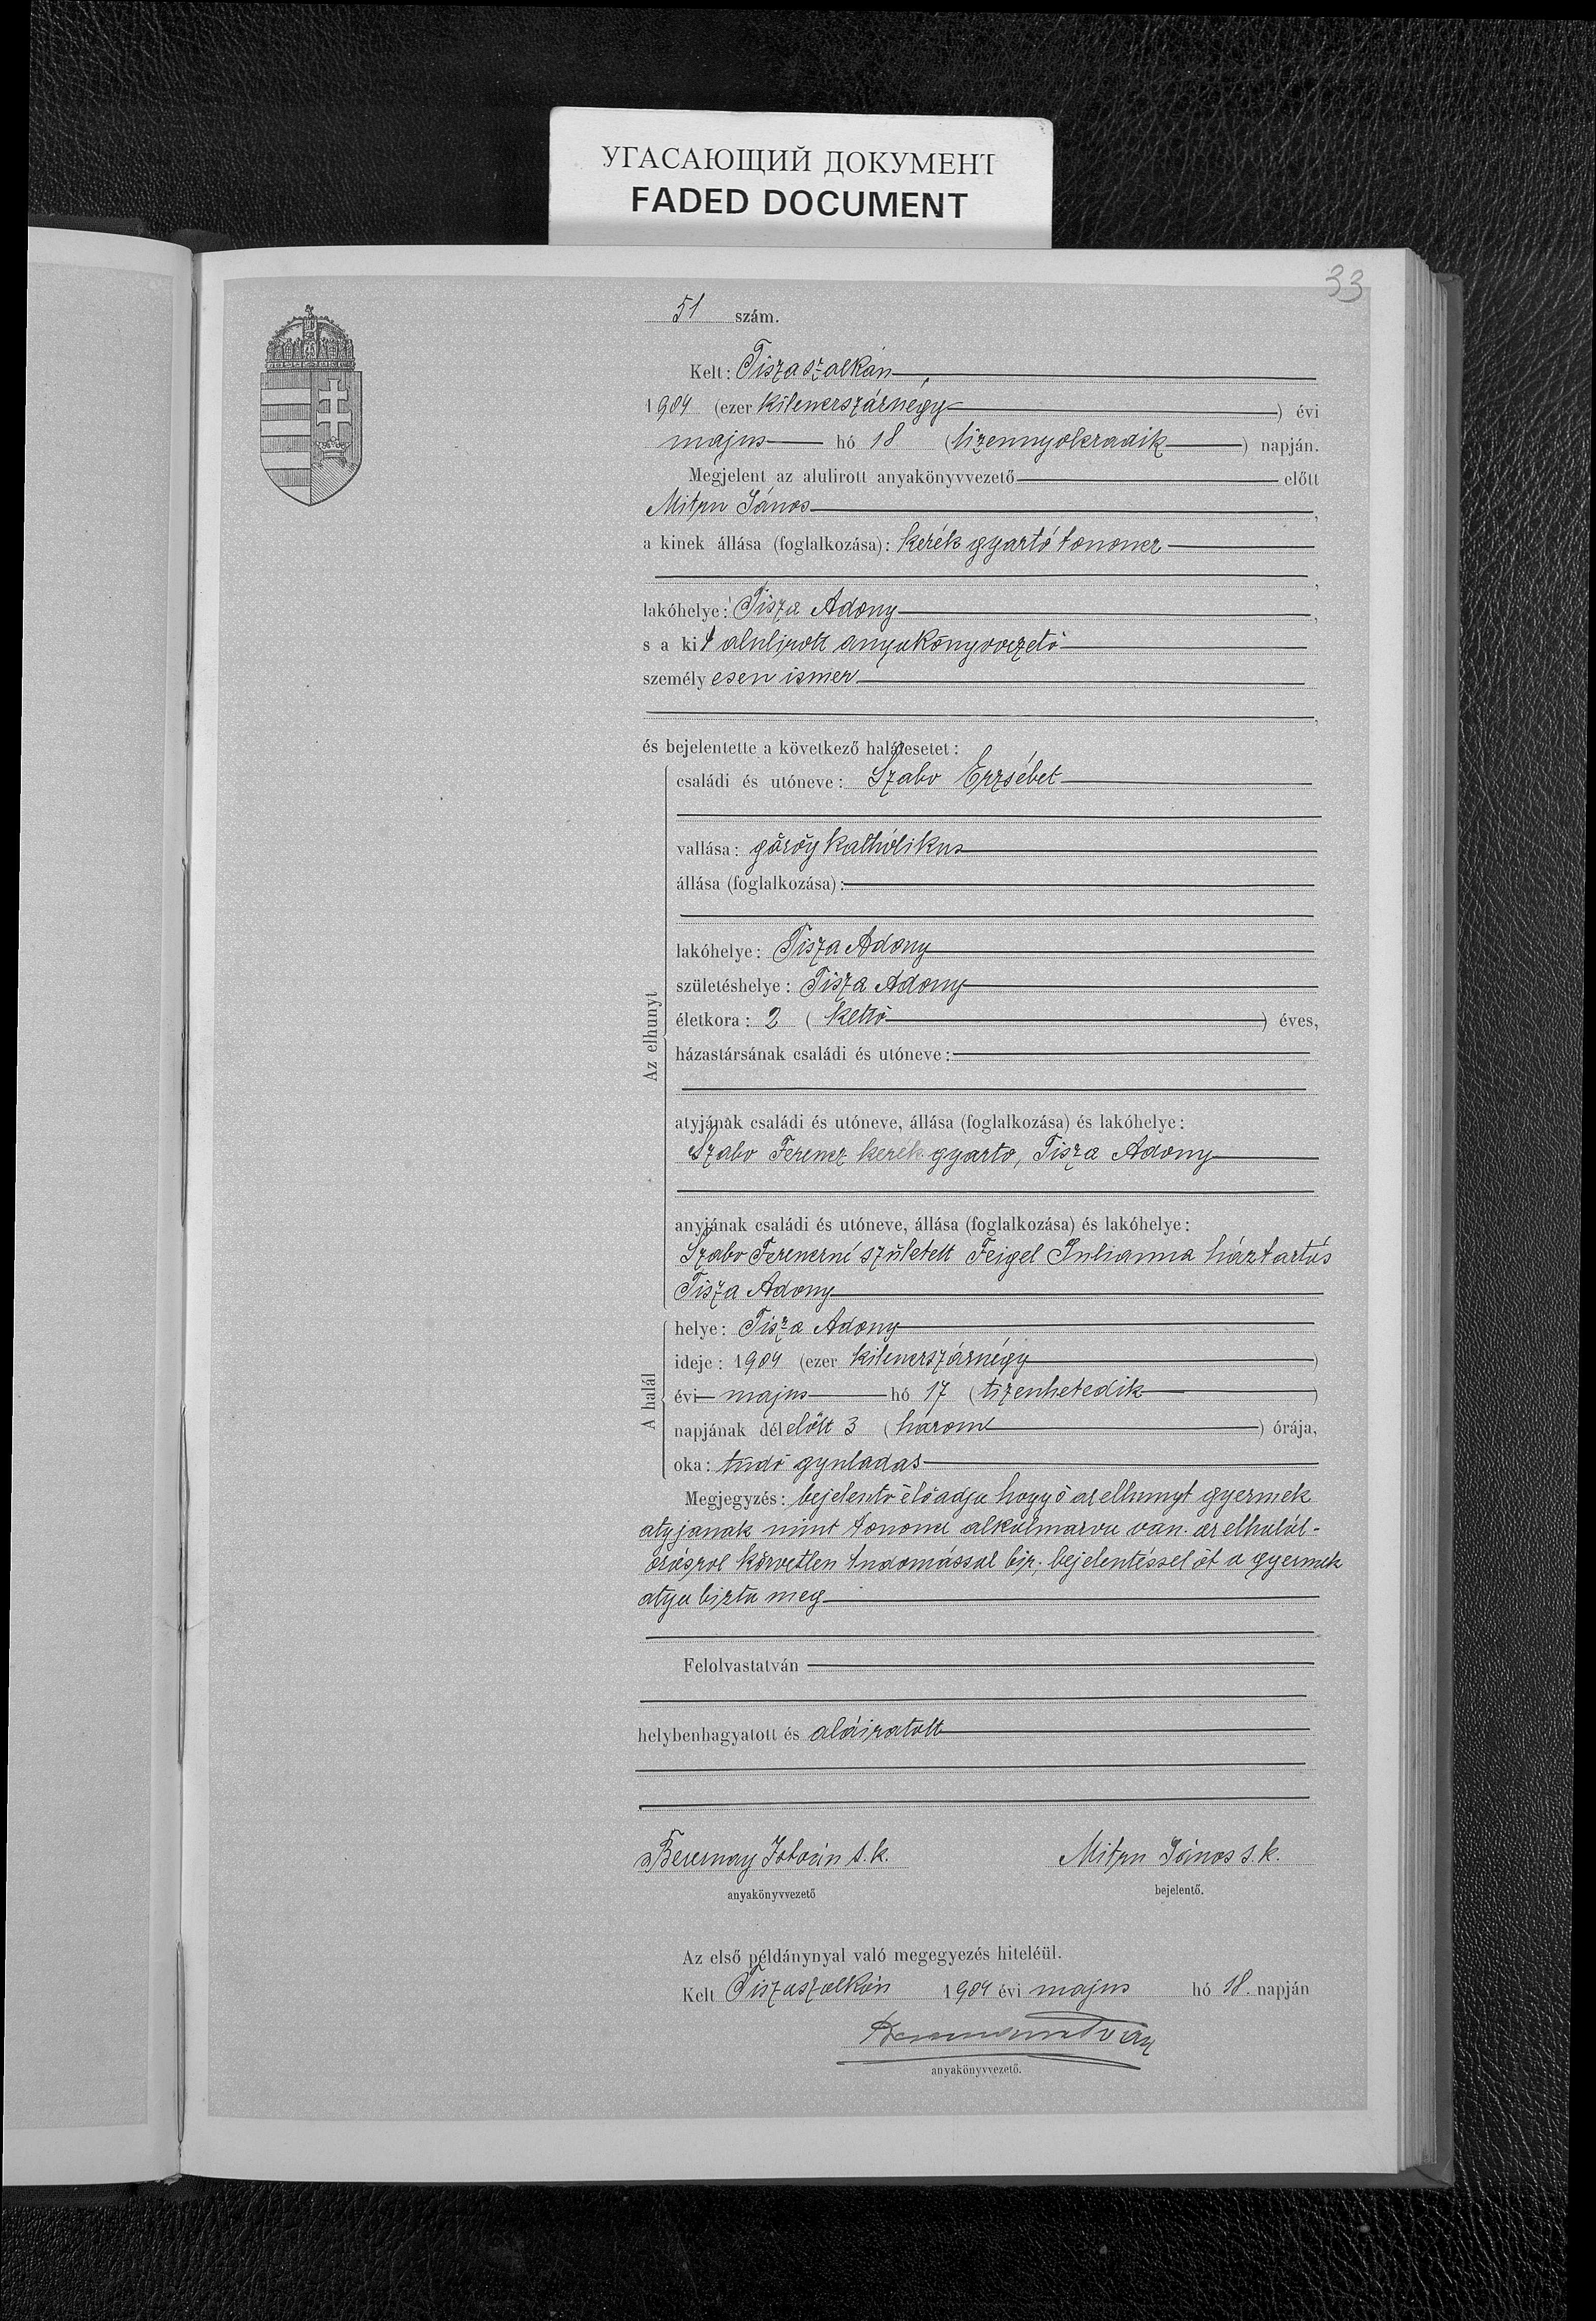 УГАСАЮЩИЙ ДОКУМЕНТ
FADED DOCUMENT
33
51 szám.
Kelt: Tiszaszalkán
1904 (ezer kilenczszáznégy) évi
majus hó 18 (tizennyolczadik) napján.
Megjelent az alulirott anyakönyvvezető előtt
Mitru János,
a kinek állása (foglalkozása): kerék gyartó tanoncz
lakóhelye: Tisza Adony,
s a kit alulirott anyakönyvvezető
személyesen ismer
és bejelentette a következő halálesetet:
Az elhunyt
családi és utóneve: Szabo Erzsébet
vallása: görög katholikus
állása (foglalkozása):
lakóhelye: Tisza Adony
születéshelye: Tisza Adony
életkora: 2 (kettő) éves,
házastársának családi és utóneve:
atyjának családi és utóneve, állása (foglalkozása) és lakóhelye:
Szabo Ferencz kerék gyarto, Tisza Adony
anyjának családi és utóneve, állása (foglalkozása) és lakóhelye:
Szabo Ferenczné született Feigel Julianna háztartás
Tisza Adony
A halál
helye: Tisza Adony
ideje: 1904 (ezer kilenczszáznégy)
évi majus hó 17 (tizenhetedik)
napjának délelőtt 3 (három) órája,
oka: tüdő gyuladas
Megjegyzés: bejelentő előadja hogy ő az elhunyt gyermek
atyjanak mint tanoncz alkalmazva van. az elhalál-
ozásrol közvetlen tudomással bir; bejelentéssel őt a gyermek
atya bizta meg
Felolvastatván
helybenhagyatott és aláiratott
István s. k.
Mitru János s. k.
anyakönyvvezető
bejelentő.
Az első példánynyal való megegyezés hiteléül.
Kelt Tiszaszalkán 1904 évi majus hó 18. napján
anyakönyvvezető.